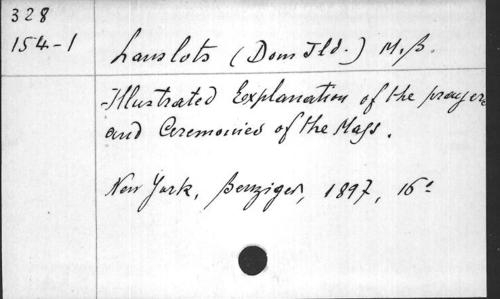 328
154-1
Lanslots (Dom Ild.) M.B.
Illustrated Explanation of the prayers
and Ceremonies of the Mass.
New York, Benziger, 1897, 16º